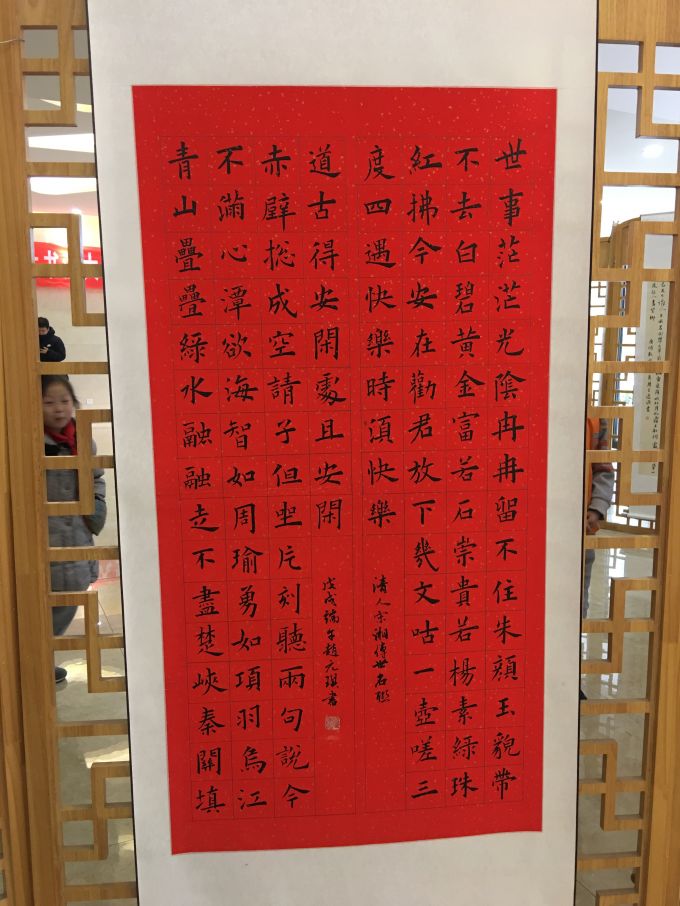 世事茫茫光陰冉冉留不住朱顏玉貌帶
不去白碧黃金富若石崇貴若楊素綠珠
紅拂今安在勸君放下幾文咕一壺嗟三
度四遇快樂時湏快樂
清人宋湘傳世名聯
青山疊疊綠水融融走不盡楚峽秦關填
不滿心潭欲海智如周瑜勇如項羽烏江
赤壁捴成空請子但坐片刻聽兩句說今
道古得安閑處且安閑
戊戌端午趙元琪書